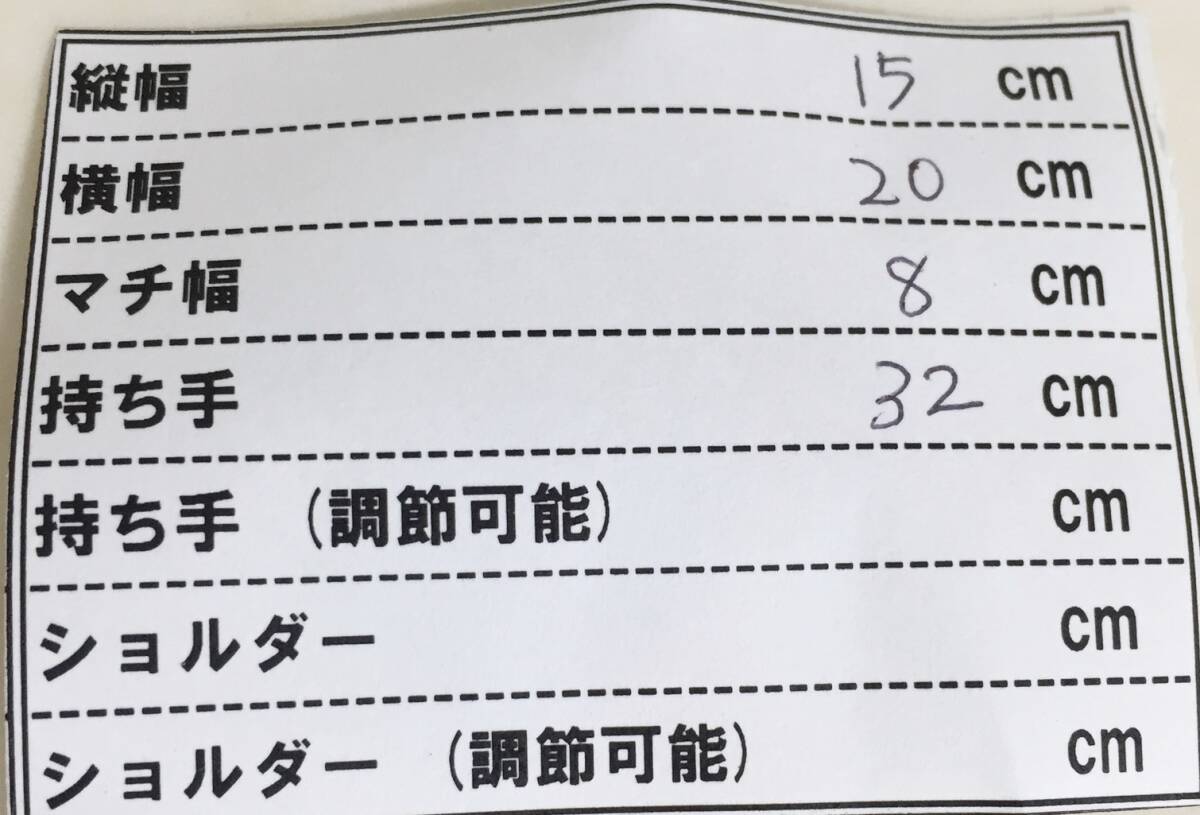 縦幅 15 cm
横幅 20 cm
マチ幅 8 cm
持ち手 32 cm
持ち手 (調節可能) cm
ショルダー cm
ショルダー (調節可能) cm